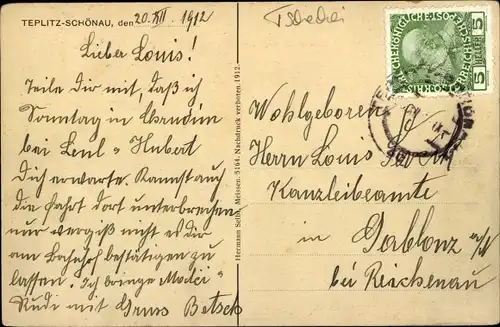 TEPLITZ-SCHÖNAU, den 20. XII 1912
Lieber Louis!
Teile Dir mit, daß ich
Sonntag in
bei Hubert
Dich erwarte. Kannst auch
die Fahrt dort unterbrechen
nur vergiß nicht es dir
am Bahnhof bestätigen zu
lassen. Ich bringe
Rudi mit Gruss Betsch
Hermann Seibt, Meissen. 5164. Nachdruck verboten. 1912.
Tschechei
5 HELLER 5
Wohlgeboren
Herrn Louis
Kanzleibeamte
in
Gablonz a/N
bei Reichenau